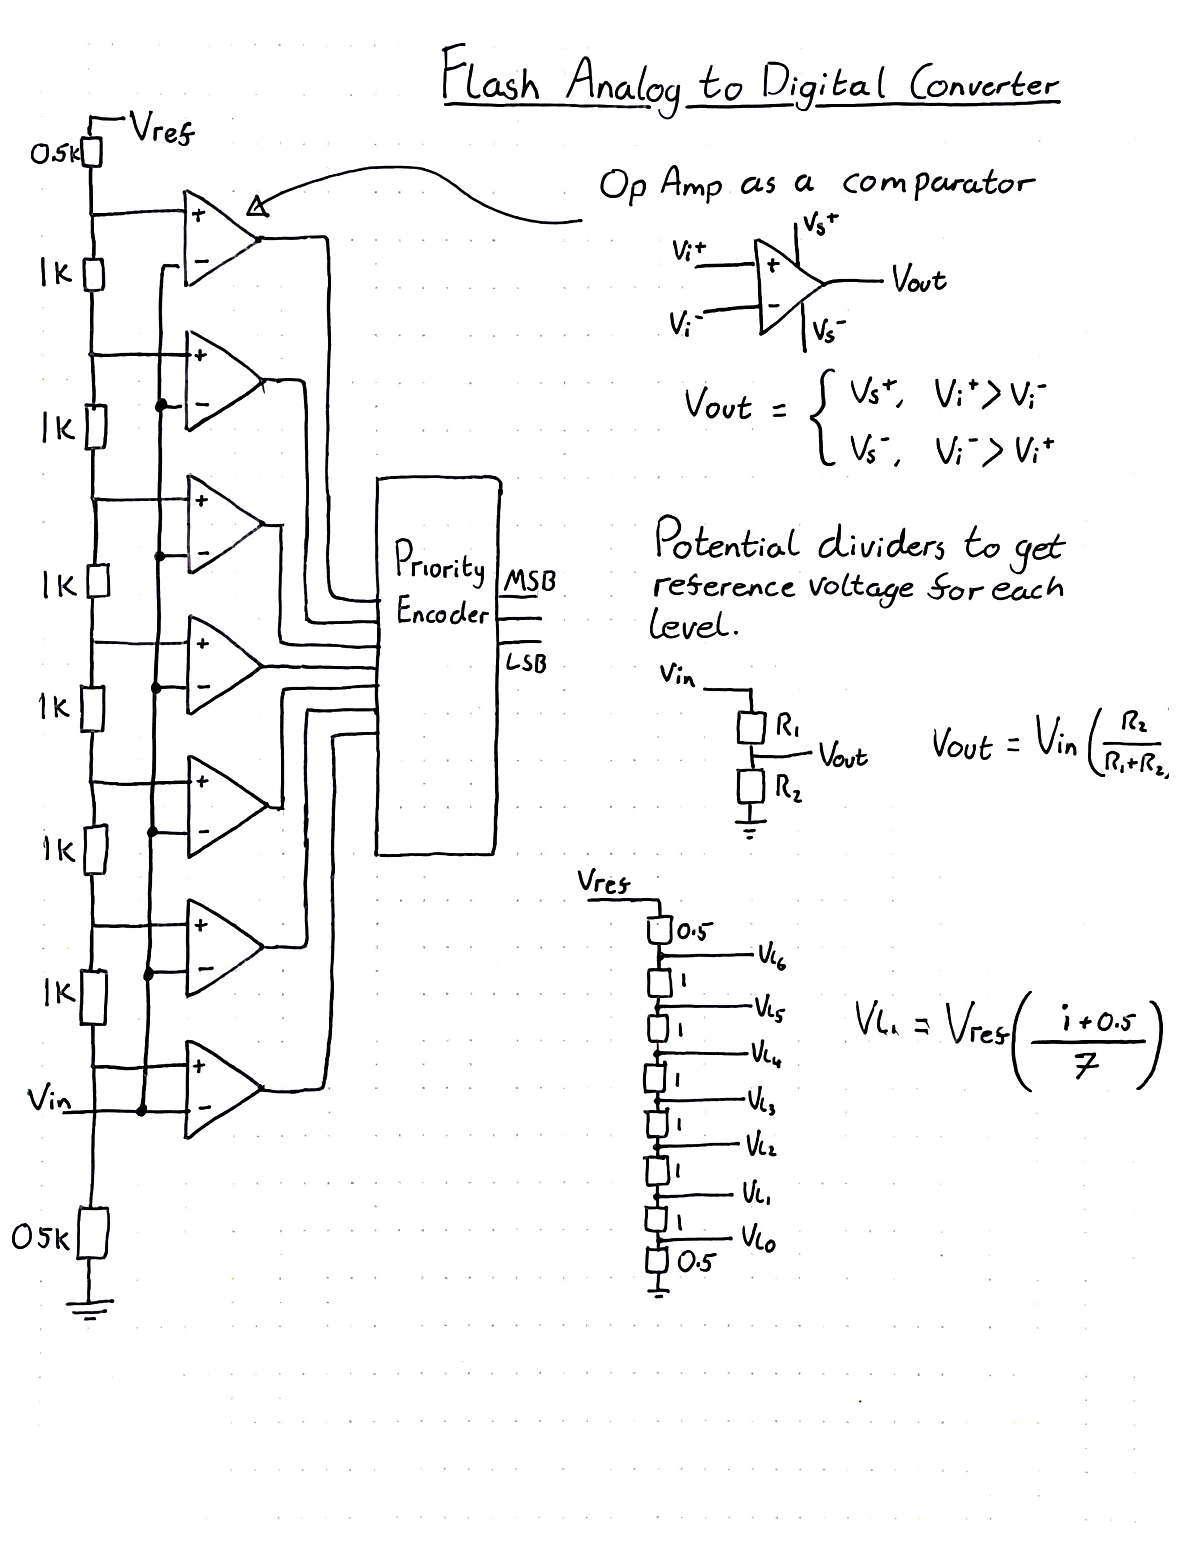 Flash Analog to Digital Converter
Vref
0.5K
+
-
1K
+
-
1K
+
-
1K
+
-
1K
+
-
1K
+
-
1K
+
-
Vin
05K
Priority
Encoder
MSB
LSB
Op Amp as a comparator
Vi+
Vi-
+
-
Vs+
Vs-
Vout
Vout = { Vs+, Vi+ > Vi-
Vs-, Vi- > Vi+
Potential dividers to get
reference voltage for each
level.
Vin
R1
Vout
R2
Vout = Vin (R2 / R1+R2
Vref
0.5
VL6
1
VL5
1
VL4
1
VL3
1
VL2
1
VL1
1
VL0
0.5
VLi = Vref (i + 0.5 / 7)